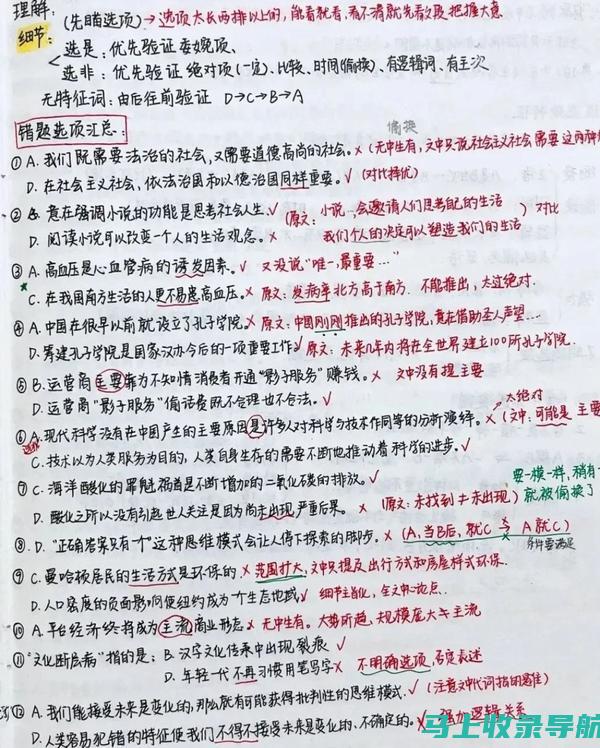 理解:
(先瞄选项)→选项太长两排以上的,能看就看,看不清就先看文段 把握大意
细节:
选是:优先验证委婉项、
选非:优先验证 绝对项(一定)、比较、时间(偷换)、有逻辑词、有主次
无特征词:由后往前验证 D→C→B→A
错题选项汇总:
偷换
① A. 我们既需要法治的社会,又需要道德高尚的社会。× (无中生有,文中只说社会主义社会需要这两种
D. 在社会主义社会,依法治国和以德治国同样重要。√ (对比择优)
② 意在强调小说的功能是思考社会人生.√ (原文:小说…会邀请人们思考自己的生活 ) 对比
D. 阅读小说可以改变一个人的生活观念。× 我们个人的决定可以塑造我们的生活
③ A. 高血压是心血管病的诱发因素。√ 又没说"唯一,最重要…"
C. 在我国南方生活的人更不易患高血压。× 原文:发病率北方高于南方. 不能推出,太过绝对.
④ A. 中国在很早以前就设立了孔子学院。× 原文:中国刚刚推出的孔子学院,意在借助圣人声望…
D. 筹建孔子学院是国家汉办今后的一项重要工作√ 原文:未来几年内将在全世界建立100所孔子学院.
⑤ B. 运营商主要靠为不知情消费者开通"影子服务"赚钱。× 文中没有提主要
D. 运营商"影子服务"偷话费既不合理也不合法。√
太绝对
⑥ A. 现代科学没有在中国产生的主要原因是许多人对科学与技术作同等的分析演绎。× (文中:可能是 主要
C. 技术以为人类服务为目的,人类自身生存的需要不断地推动着科学的进步。√
⑦ C. 海洋酸化的罪魁祸首是不断增加的二氧化碳的排放。√
要一模一样,稍有
D. 酸化之所以没有引起世人关注是因为尚未出现严重后果。× (原文:未找到≠未出现) 就被偷换了
⑧ D. "正确答案只有一个"这种思维模式会让人停下探索的脚步。× (A,当B后,就C → A就C)
条件要满足
⑨ C. 曼哈顿居民的生活方式是环保的 × 范围扩大,文中只提及出行方式和房屋样式环保.
D. 人口密度的负面影响使纽约成为一个生态地域√ 细节主旨化,全文中心论点.
⑩ A. 平台经济终将成为主流商业形态 × 无中生有. 大势所趋,规模庞大≠主流
⑪ "文化断层病"指的是:B. 汉字文化传承中出现裂痕 √
D. 年轻一代不再习惯用笔写字× 不明确选项,否度表述
⑫ A. 我们能接受未来是变化的,那么就有可能获得批判性的思维模式.√ (注意文中代词指的是谁)
D. 人类容易犯错的特征使我们不得不接受未来是变化的、不确定的。× 强加逻辑关系
马上收录导航